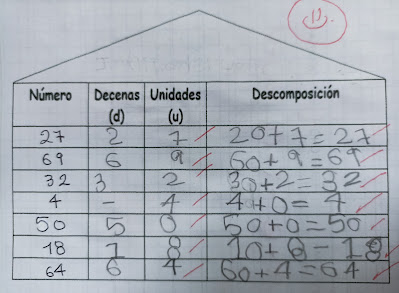 Número Decenas (d) Unidades (u) Descomposición
27 2 7 20+7=27
69 6 9 60+9=69
32 3 2 30+2=32
4 - 4 4+0=4
50 5 0 50+0=50
18 1 8 10+8=18
64 6 4 60+4=64